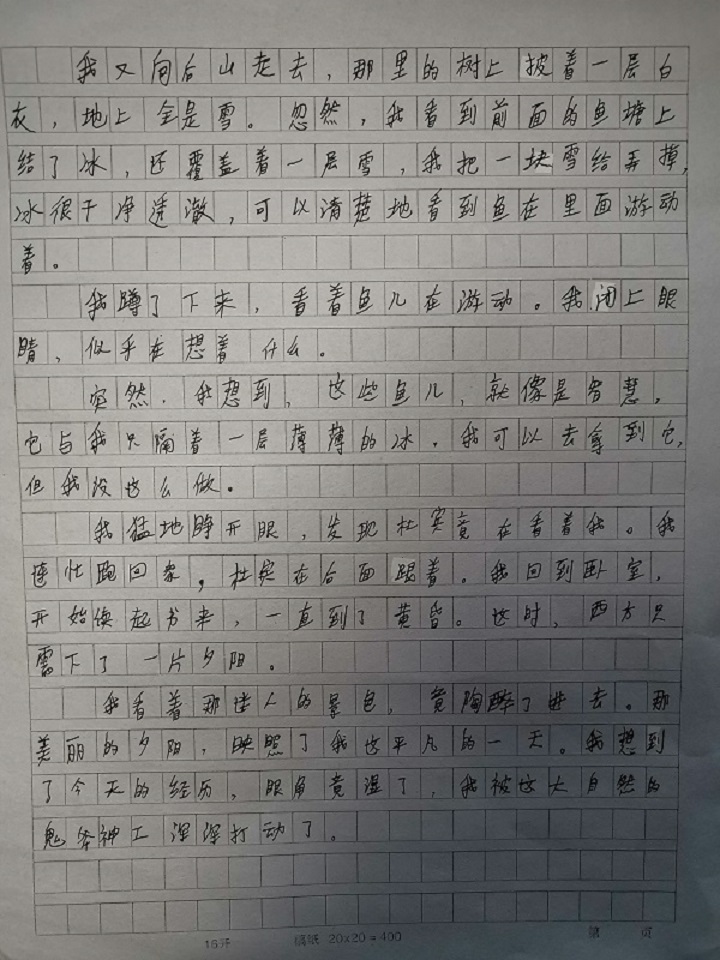 我又向后山走去，那里的树上披着一层白
衣，地上全是雪。忽然，我看到前面的鱼塘上
结了冰，还覆盖着一层雪，我把一块雪给弄掉，
冰很干净透澈，可以清楚地看到鱼在里面游动
着。
我蹲了下来，看着鱼儿在游动。我闭上眼
睛，似乎在想着什么。
突然，我想到，这些鱼儿，就像是智慧，
它与我只隔着一层薄薄的冰，我可以去拿到它，
但我没这么做。
我猛地睁开眼，发现杜宾竟在看着我。我
连忙跑回家，杜宾在后面跟着。我回到卧室，
开始读起书来，一直到了黄昏。这时，西方只
露下了一片夕阳。
我看着那迷人的景色，竟陶醉了进去。那
美丽的夕阳，映照了我这平凡的一天。我想到
了今天的经历，眼角竟湿了，我被这大自然的
鬼斧神工深深打动了。
16开 稿纸 20×20=400 第 页